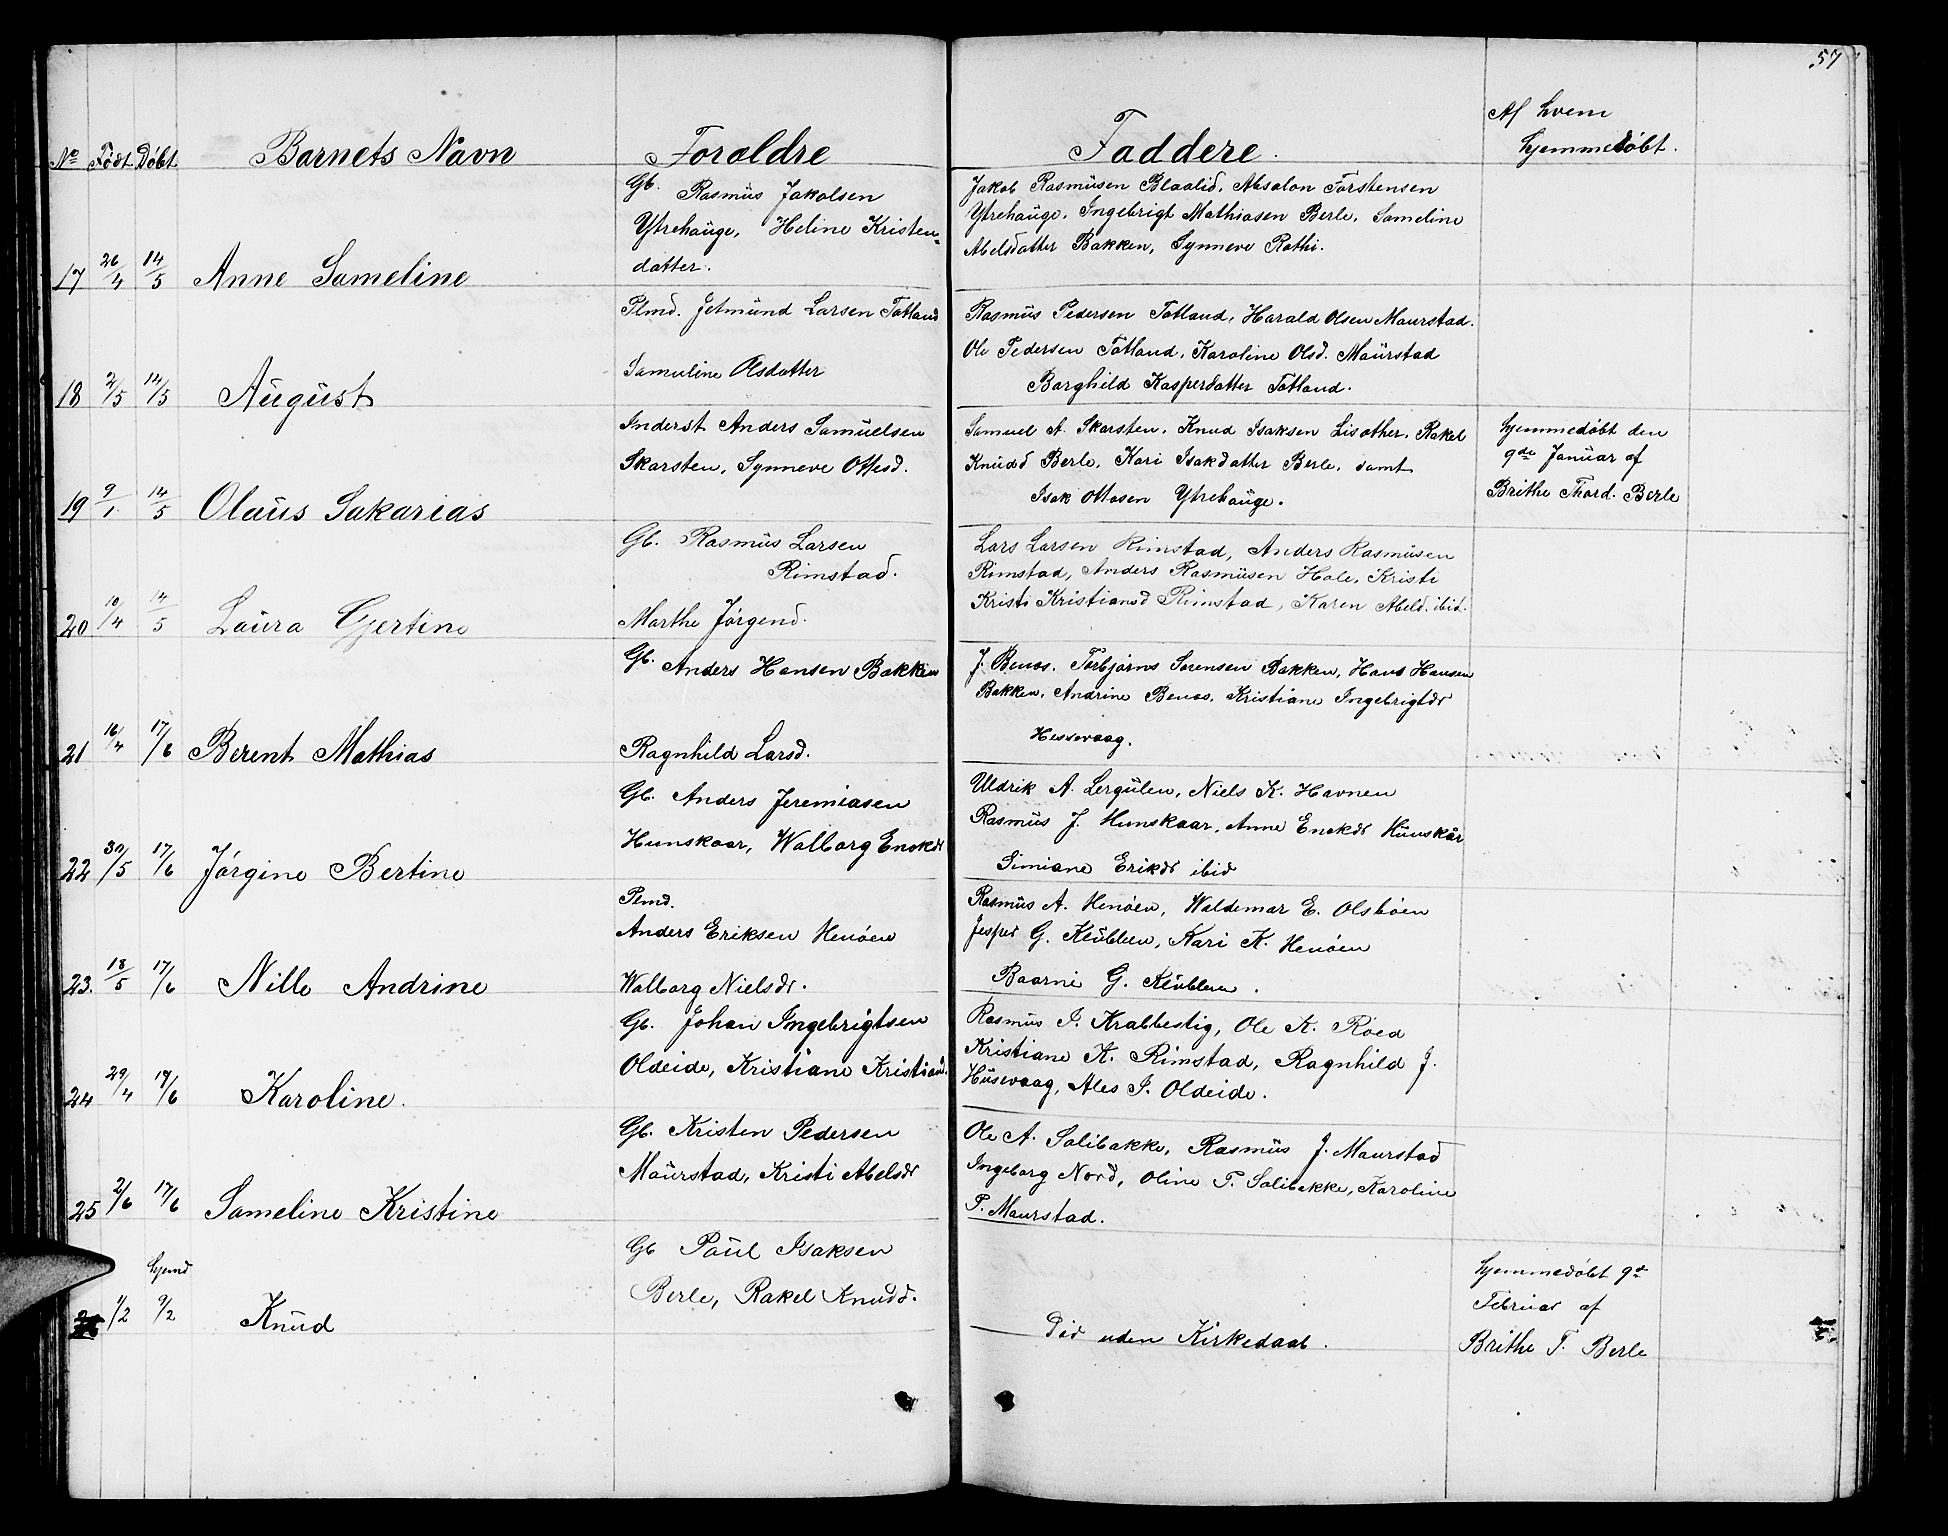 57
No Født Døbt Barnets Navn Forældre Faddere. Af hvem
hjemmedøbt.
17 26/4 14/5 Anne Sameline
Gb. Rasmüs Jakobsen
Ytrehaüge, Heline Kristen-
datter.
Jakob Rasmüsen Blaalid, Absalon Torstensen
Ytrehaüge, Ingebrigt Mathiasen Berle, Sameline
Abelsdatter Bakken, Synneve Rathi.
18 2/5 14/5 Aügüst
Plmd. Jetmünd Larsen Totland
Samuline Olsdatter
Rasmüs Pedersen Totland, Harald Olsen Maurstad.
Ole Pedersen Totland, Karoline Olsd. Maürstad
Borghild Kasperdatter Totland.
19 9/1 14/5 Olaüs Sakarias
Inderst Anders Samüelsen
Skarsten, Synneve Ottesd.
Samuel A. Skarsten, Knud Isaksen Lisæther, Rakel
Knudsd Berle, Kari Isakdatter Berle, samt
Isak Ottosen Ytrehaüge.
hjemmedøbt den
9de Janüar af
Brithe Thord. Berle
20 10/4 14/5 Laüra Gjertine
Gb. Rasmüs Larsen
Rimstad.
Marthe Jørgend.
Lars Larsen Rimstad, Anders Rasmüsen
Rimstad, Anders Rasmüsen Hole, Kristi
Kristi Kristiansd Rimstad, Karen Abeld. ibid.
21 16/4 17/6 Berent Mathias
Gb. Anders Hansen Bakken
Ragnhild Larsd.
J. Benos. Torbjørns Sørensen Bakken, Hans Hansen
Bakken, Andrine Benos, Kristiane Ingebrigtdr
Hessevaag.
22 30/5 17/6 Jørgine Bertine
Gb. Anders Jeremiasen
Hunskaar, Walborg Enokdr
Uldrik A. Lergülen, Niels K. Havnen
Rasmüs J. Hunskaar, Anne Enokdr Hünskår
Simiane Erikdr ibid
23. 18/5 17/6 Nille Andrine
Plmd.
Anders Eriksen Henøen
Walborg Nielsdr.
Rasmüs A. Henøen, Waldemar E. Olsbøen
Jesper G. Klübben, Kari K. Henøen
Baarni G. Klübben.
24 29/4 17/6 Karoline.
Gb. Johan Ingebrigtsen
Oldeide, Kristiane Kristiand.
Rasmüs I. Krabbestig, Ole K. Røed
Kristiane K. Rimstad, Ragnhild J.
Hüsevaag, Ales I. Oldeide.
25 2/6 17/6 Sameline Kristine
Gb. Kristen Pedersen
Maürstad, Kristi Abelsdr
Ole A. Solibakke, Rasmüs J. Maurstad
Ingeborg Nord, Oline T. Solibakke, Karoline
P. Maurstad.
26 1/2 hjemd 9/2 Knüd
Gb Paül Isaksen
Berle, Rakel Knudd.
Død uden Kirkedaab.
hjemmedøbt 9de
Februar af
Brithe T. Berle